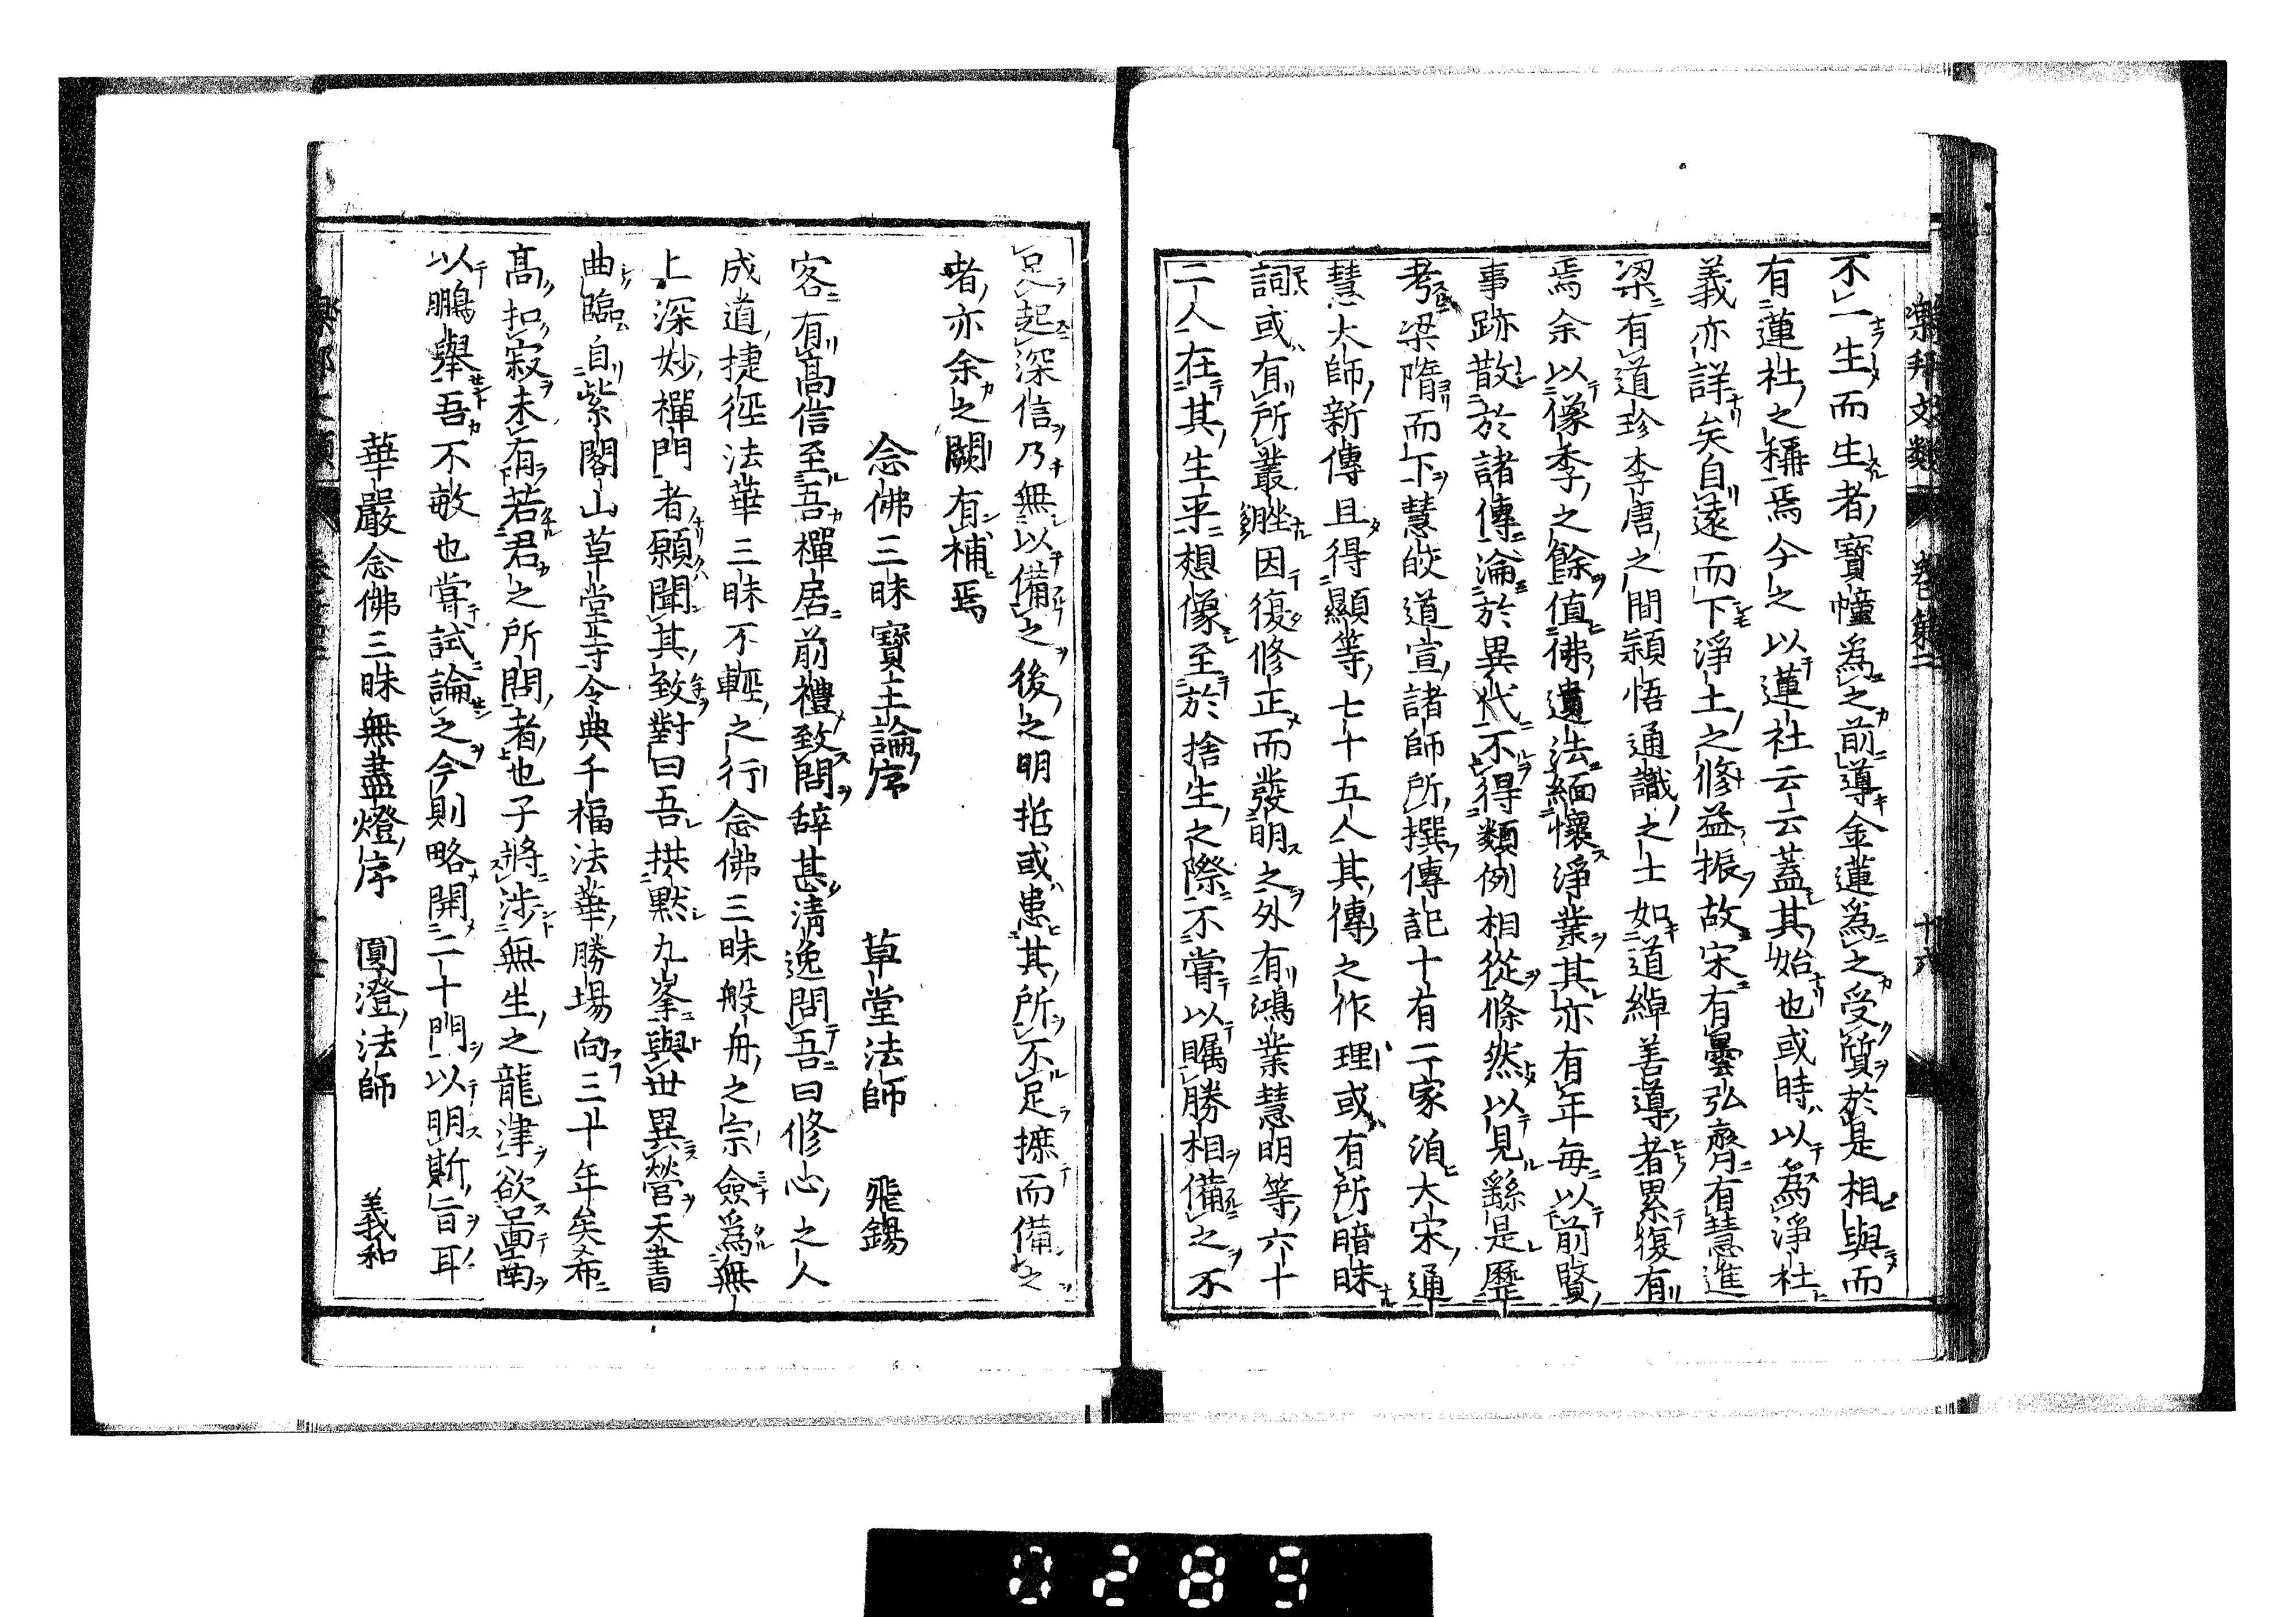 樂邦文類 卷第二 十六
不一生而生者寶幢爲之前導金蓮爲之受質於是相與而
有蓮社之稱焉今之以蓮社云云蓋其始也或時以爲淨社
義亦詳矣自遠而下淨土之修益振故宋有曇弘齊有慧進
梁有道珍李唐之間穎悟通識之士如道綽善導者累復有
焉余以像季之餘值佛遺法緬懷淨業其亦有年每以前賢
事跡散於諸傳淪於異代不得類例相從條然以見繇是歷
考梁隋而下慧皎道宣諸師所撰傳記十有二家洎大宋通
慧大師新傳且得顯等七十五人其傳之作理或有所暗昧
詞或有所叢脞因復修正而發明之外有鴻業慧明等六十
二人在其生平想像至於捨生之際不嘗以矚勝相備之不
足起深信乃無以備之後之明哲或患其所不足摭而備之
者亦余之闕有補焉
念佛三昧寶王論序 草堂法師 飛錫
客有高信至吾禪居前禮致問辭甚清逸問吾曰修心之人
成道捷徑法華三昧不輕之行念佛三昧般舟之宗僉爲無
上深妙禪門者願聞其致對曰吾拱默九峯與世異營天書
曲臨自紫閣山草堂寺令典千福法華勝場向三十年矣希
高扣寂未有若君之所問者也子將涉無生之龍津欲啚南
以鵬舉吾不敏也嘗試論之今則略開二十門以明斯旨耳
華嚴念佛三昧無盡燈序 圓澄法師 義和
0289